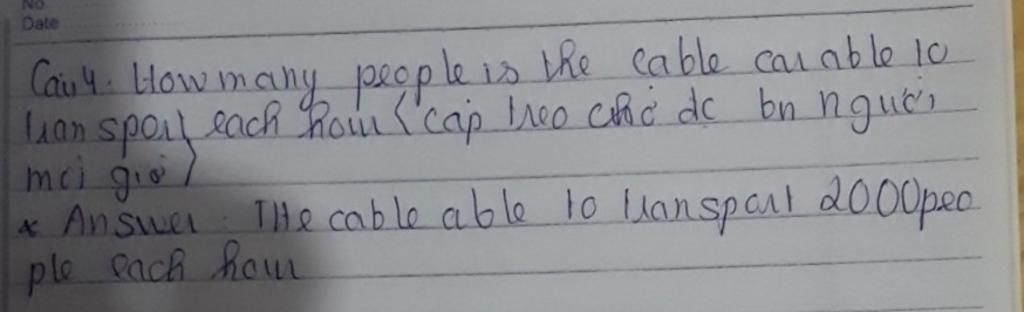 No.
Date
Câu 4. How many people is the cable car able to
transport each hour (cáp treo chở dc bn người
mỗi giờ)
* Answer: The cable able to transport 2000 peo
ple each hour